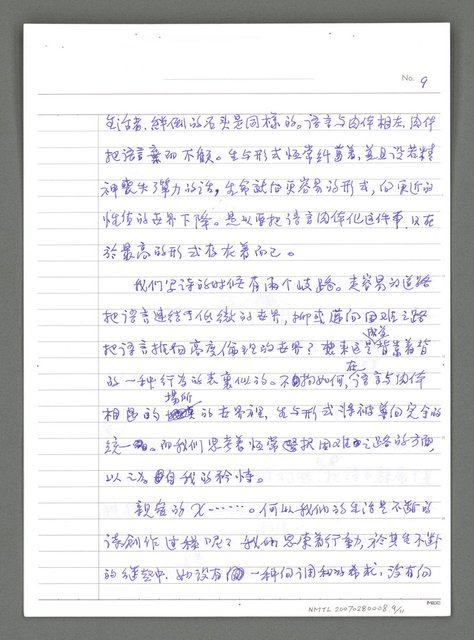 No. 9
生活者,絆倒的石头是同樣的。語言与肉体相左,肉体
把語言棄而不顧。生与形式恆常糾葛着,並且設若精
神喪失了彈力的話,生命就向更容易的形式,向更近的
性質的世界下降。是以要把語言肉体化這件事,只在
於最高的形式存在着而已。
我們写詩的时候有兩个岐路。走容易的道路
把語言連結于低微的世界,抑或邁向困难之路
把語言推向高度倫理的世界?想來這是背靠着背
成并
的一种行为的表裏似的。不拘如何,在語言与肉体
相  的場所的世界裡,生与形式将被導向完全的
統一。而我們思考着恆常選択困难之路的方面,
以之為自我的矜恃。
親愛的X……。何以我們的生活是不断的
詩創作过程呢?我們思索着行動,於其生不断
的継起中,如沒有一种向調和的希求,沒有向
MBCC
NMTL 20070280008, 9/11